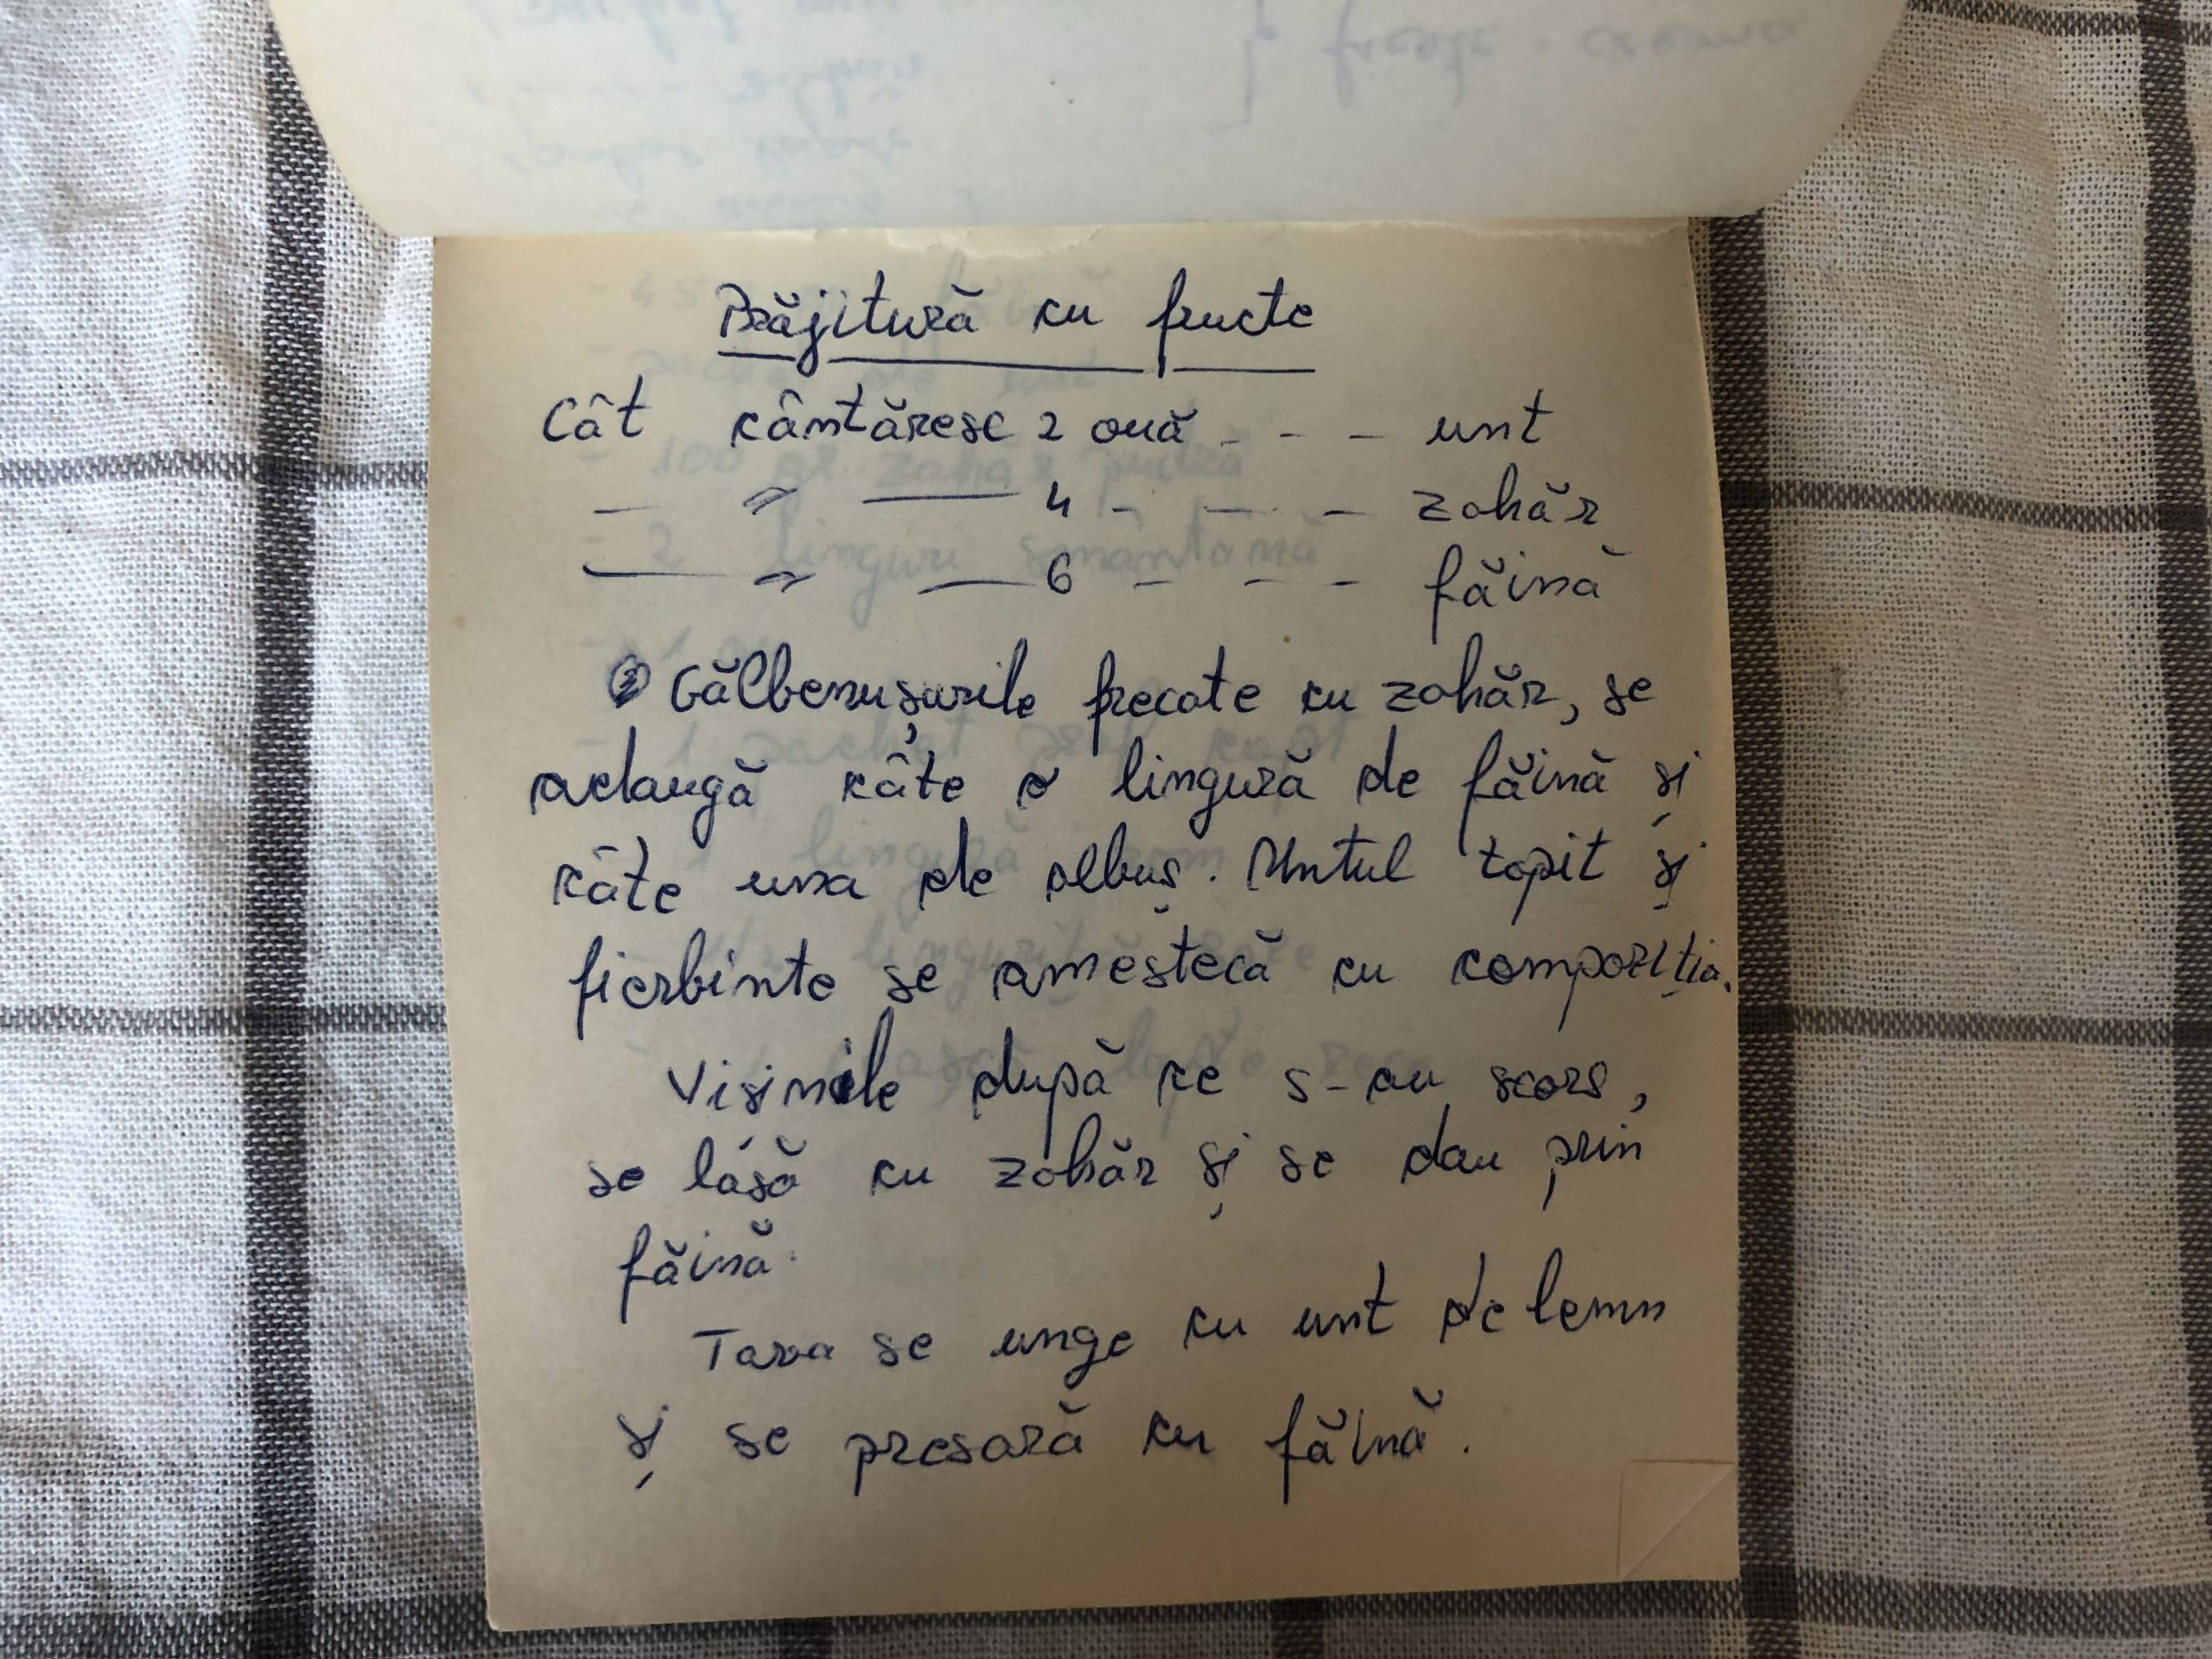 Prăjitură cu fructe
Cât cântăresc 2 ouă - - - unt
— " — 4 - - - zahăr
— " — 6 - - - făină
Gălbenușurile frecate cu zahăr, se
adaugă câte o lingură de făină și
câte una de albuș. Untul topit și
fierbinte se amestecă cu compoziția.
Vișinile după ce s-au scors,
se lasă cu zahăr și se dau prin
făină.
Tava se unge cu unt de lemn
și se presară cu făină.